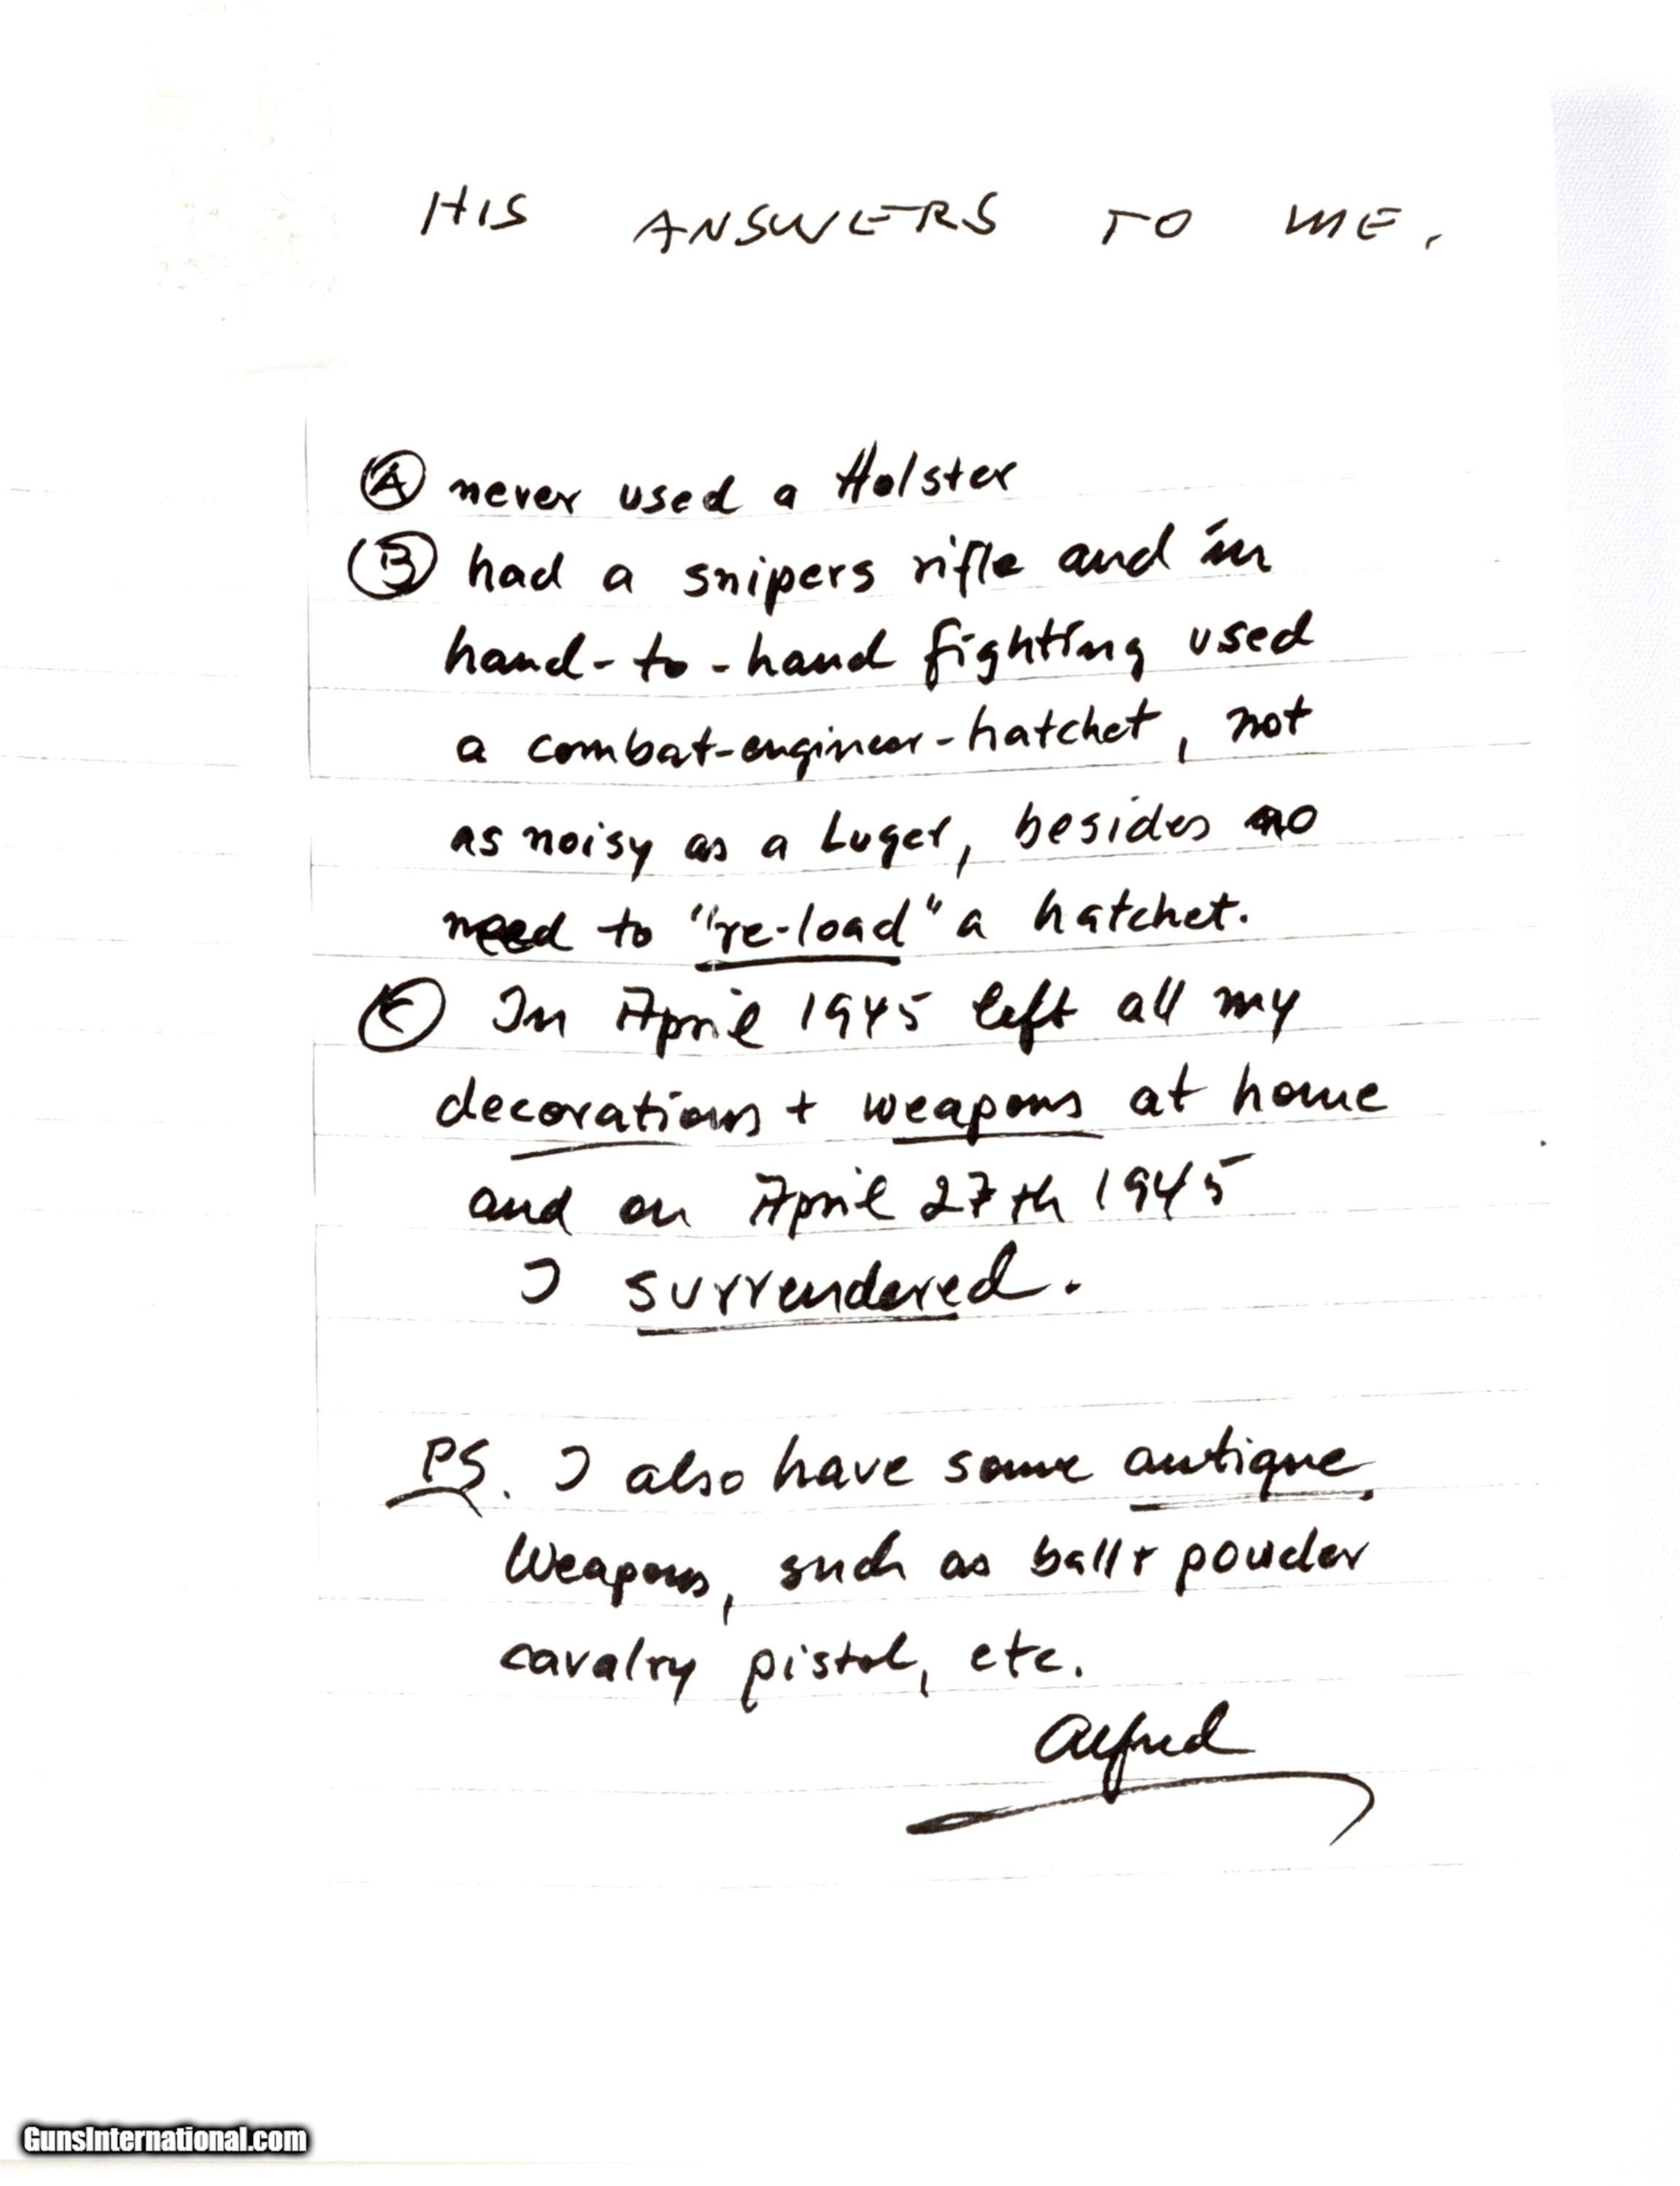 HIS ANSWERS TO ME.
Ⓐ never used a Holster
Ⓑ had a snipers rifle and in
hand-to-hand fighting used
a combat-engineer-hatchet, not
as noisy as a Luger, besides no
need to "re-load" a hatchet.
Ⓒ In April 1945 left all my
decorations + weapons at home
and on April 27th 1945
I surrendered.
PS. I also have some antique
Weapons, such as ball + powder
cavalry pistol, etc.
Alfred
GunsInternational.com